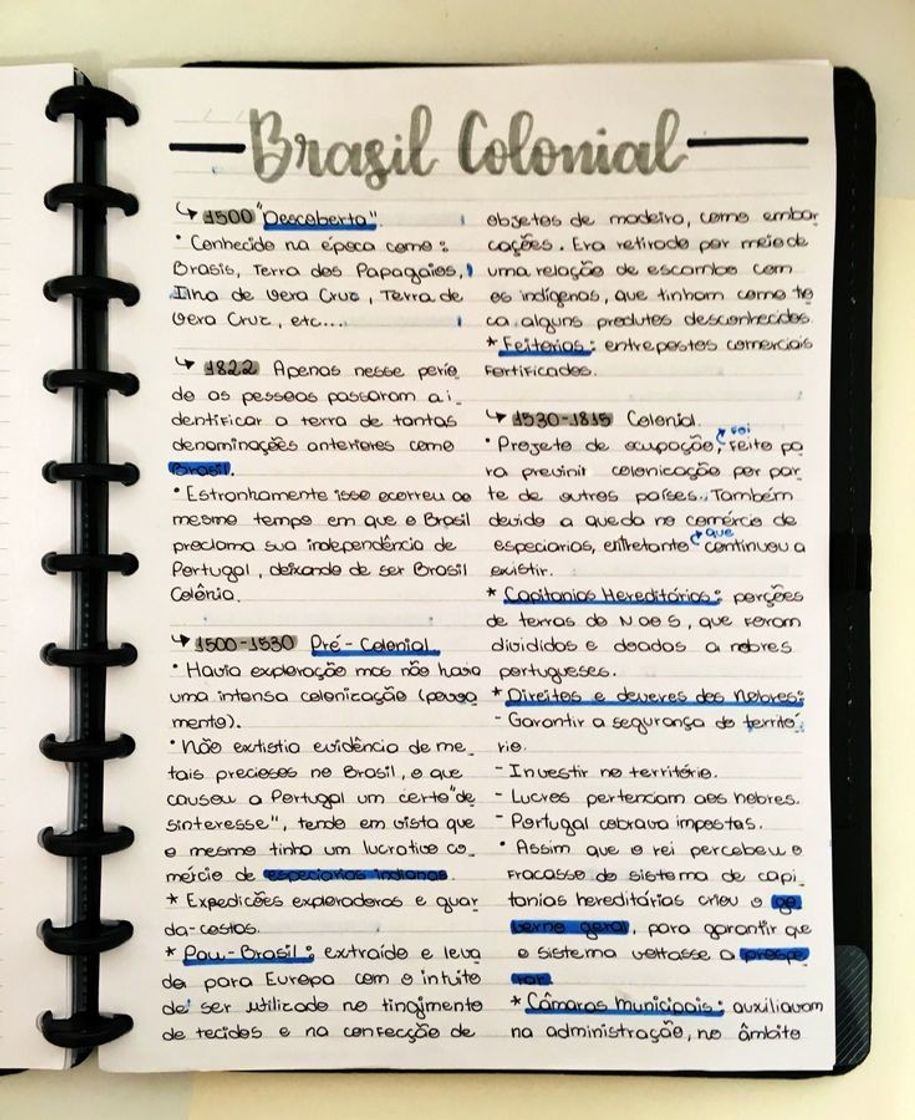 Brasil Colonial
↳ 1500 "Descoberta".
• Conhecido na época como:
Brasis, Terra dos Papagaios,
Ilha de Vera Cruz, Terra de
Vera Cruz, etc...
↳ 1822 Apenas nesse perío
do as pessoas passaram a i_
dentificar a terra de tantas
denominações anteriores como
Brasil.
• Estranhamente isso ocorreu ao
mesmo tempo em que o Brasil
proclama sua independência de
Portugal, deixando de ser Brasil
Colônia.
↳ 1500-1530 Pré-Colonial
• Havia exploração mas não havia
uma intensa colonização (povoa
mento).
• Não extistia evidência de me_
tais preciosos no Brasil, o que
causou a Portugal um certo "de
sinteresse", tendo em vista que
o mesmo tinha um lucrativo co_
mércio de especiarias indianas.
* Expedicões exploradoras e guar
da-costas.
* Pau-Brasil: extraído e leva
do para Europa com o intuito
de ser utilizado no tingimento
de tecidos e na confecção de
objetos de madeira, como embar
cações. Era retirado por meio de
uma relação de escambo com
os indígenas, que tinham como tro
ca alguns produtos desconhecidos.
* Feitorias: entrepostos comerciais
fortificados.
↳ 1530-1815 Colonial.
• Projeto de ocupação, foi feito pa
ra previnir colonicação por par
te de outros países. Também
devido a queda no comércio de
especiarias, entretanto que continuou a
existir.
* Capitanias Hereditárias: porções
de terras do N ao S, que foram
divididos e doados a nobres
portugueses.
* Direitos e deveres dos Nobres:
- Garantir a segurança do territó
rio.
- Investir no território.
- Lucros pertenciam aos nobres.
- Portugal cobrava impostos.
• Assim que o rei percebeu o
fracasso do sistema de capi
tanias hereditárias criou o go
verno geral, para garantir que
o sistema voltasse a prospe
rar.
* Câmaras municipais: auxiliavam
na administração, no âmbito